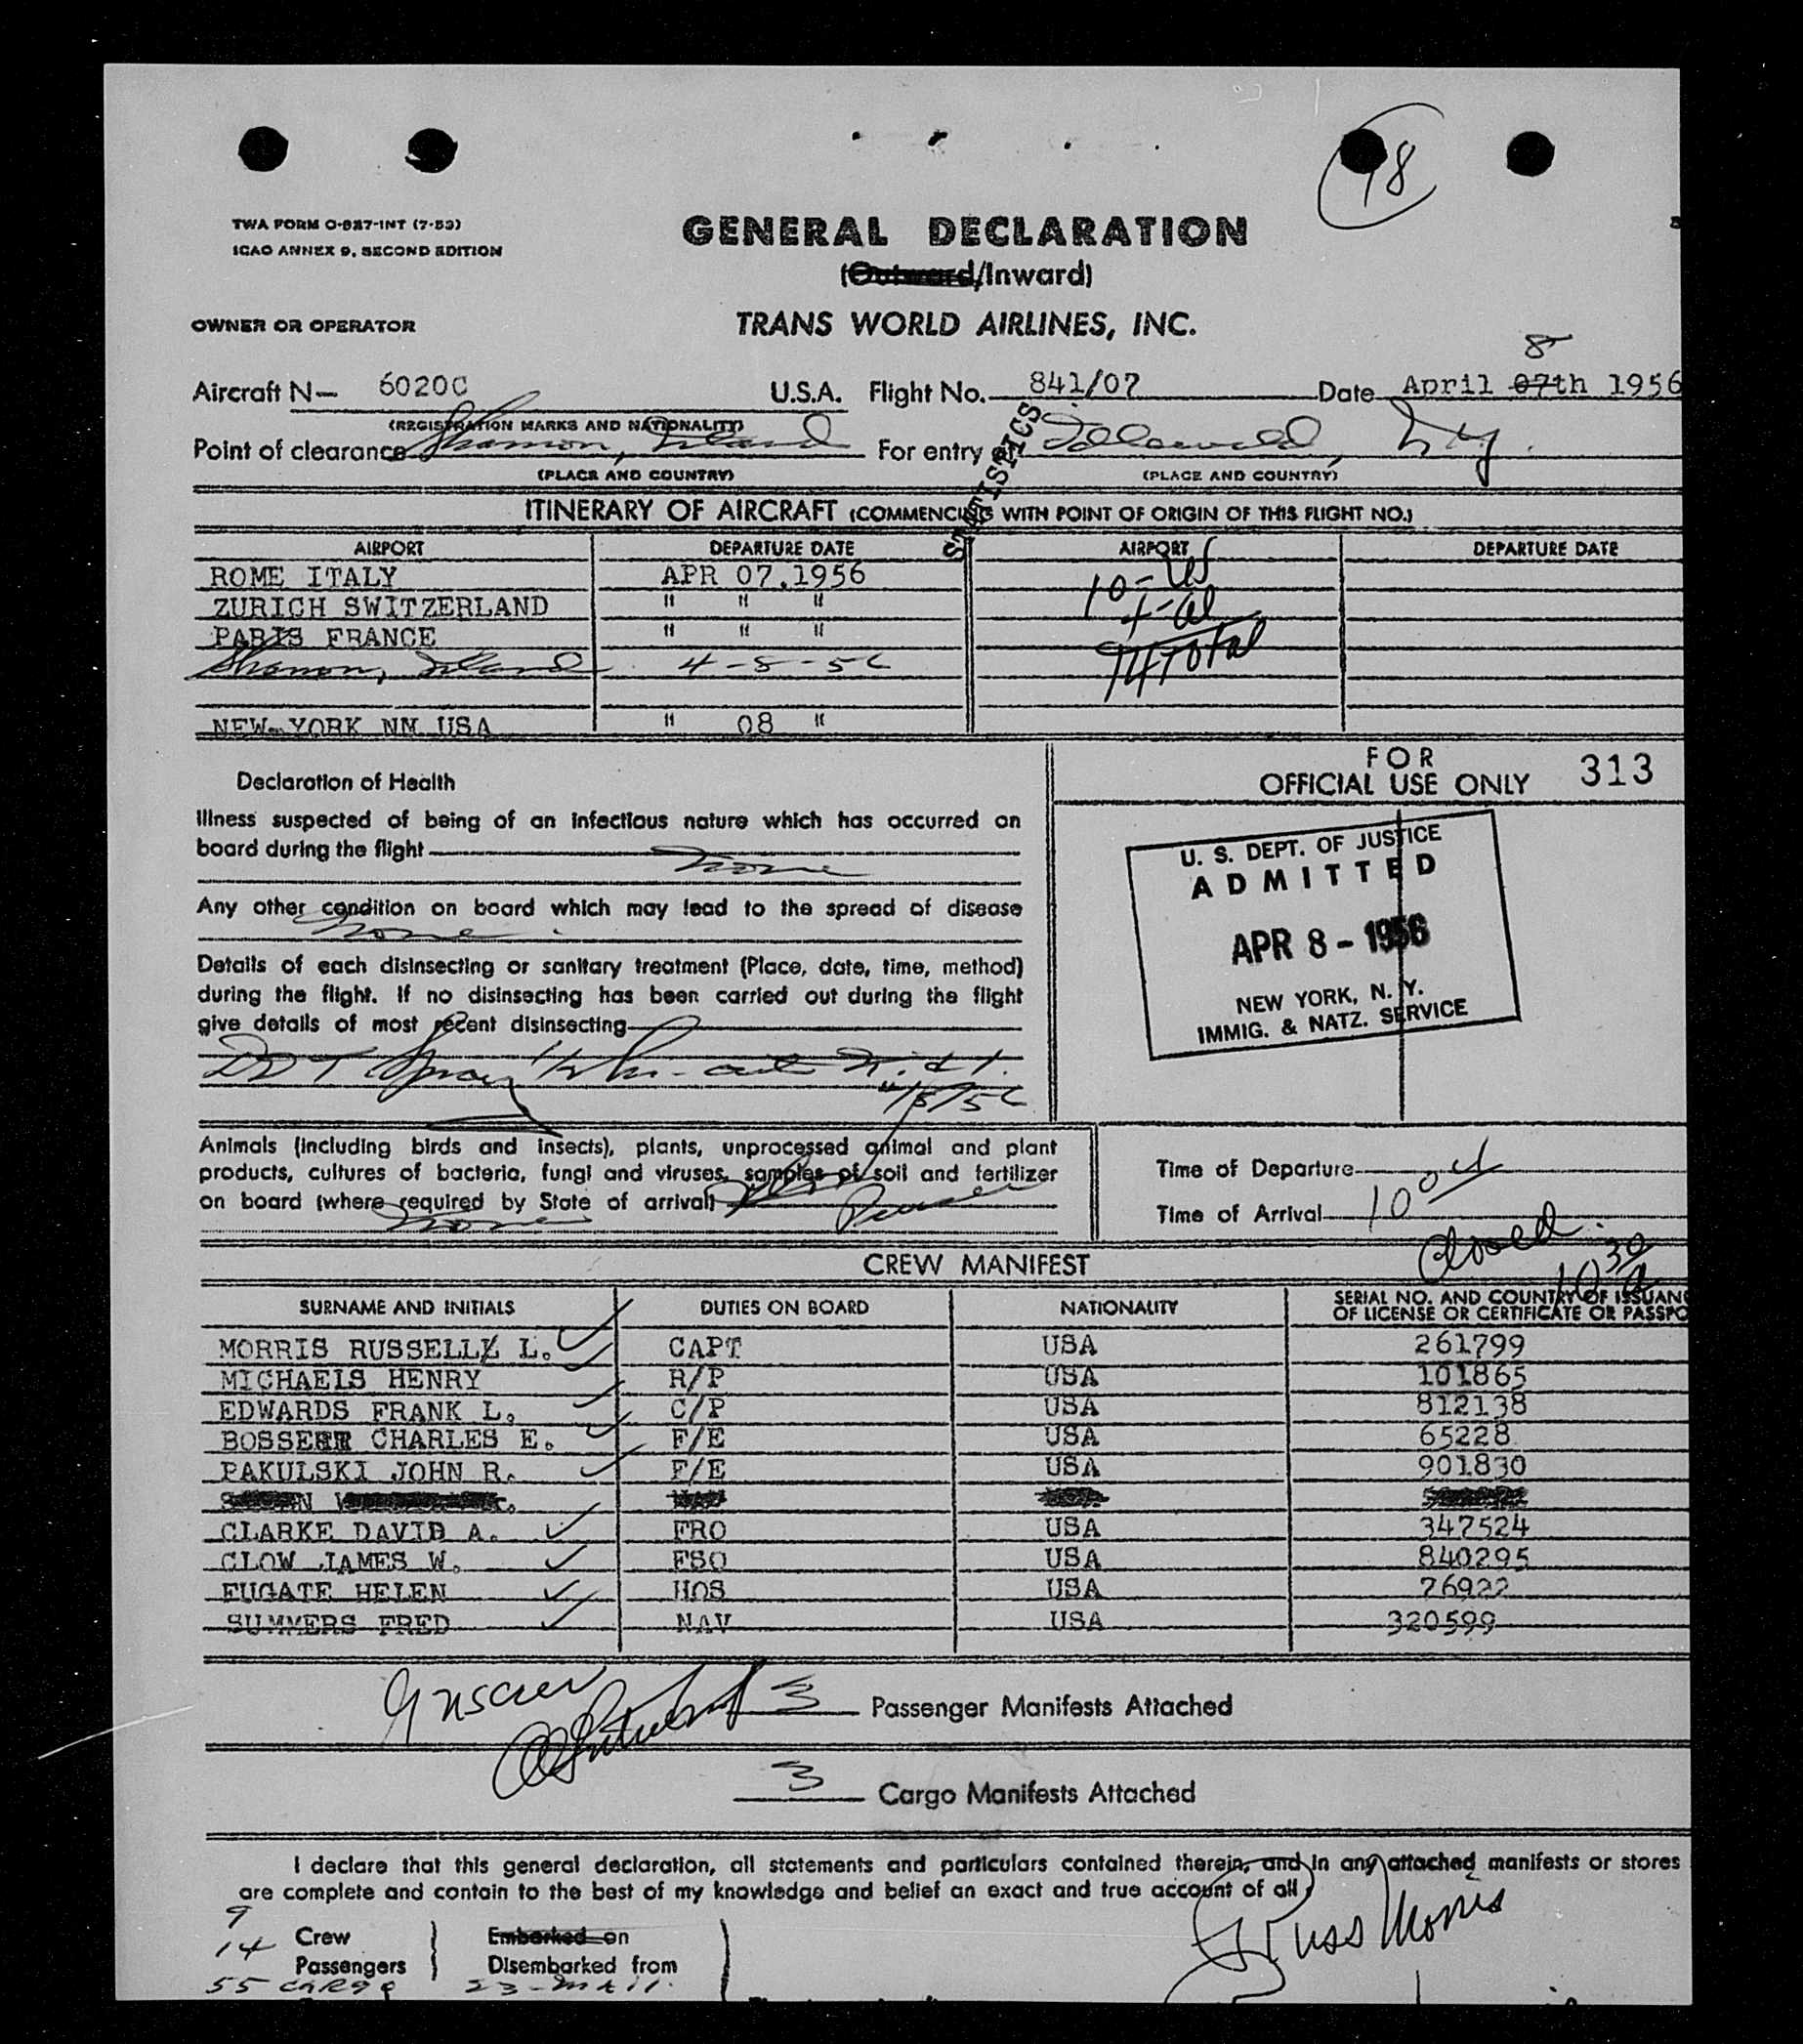 98
TWA FORM O-827-INT (7-53)
ICAO ANNEX 9, SECOND EDITION
GENERAL DECLARATION
(Outward/Inward)
OWNER OR OPERATOR
TRANS WORLD AIRLINES, INC.
8
Aircraft N— 6020C U.S.A. Flight No. 841/07 Date April 07th 1956
(REGISTRATION MARKS AND NATIONALITY)
Point of clearance Shannon, Ireland For entry at Idlewild, N.Y.
(PLACE AND COUNTRY) (PLACE AND COUNTRY)
STATISTICS
ITINERARY OF AIRCRAFT (COMMENCING WITH POINT OF ORIGIN OF THIS FLIGHT NO.)
AIRPORT DEPARTURE DATE AIRPORT DEPARTURE DATE
ROME ITALY APR 07.1956 10-US
ZURICH SWITZERLAND " " " 4-al
PARIS FRANCE " " " 14 Total
Shannon, Ireland 4-8-56
NEW YORK NM USA " 08 "
FOR
OFFICIAL USE ONLY 313
Declaration of Health
Illness suspected of being of an infectious nature which has occurred on
board during the flight none
Any other condition on board which may lead to the spread of disease
none
Details of each disinsecting or sanitary treatment (Place, date, time, method)
during the flight. If no disinsecting has been carried out during the flight
give details of most recent disinsecting
DDT Spray
4/8/56
U. S. DEPT. OF JUSTICE
ADMITTED
APR 8 - 1956
NEW YORK, N. Y.
IMMIG. & NATZ. SERVICE
Animals (including birds and insects), plants, unprocessed animal and plant
products, cultures of bacteria, fungi and viruses, samples of soil and fertilizer
on board (where required by State of arrival)
none
Time of Departure
Time of Arrival 10 04
Closed
10 30
CREW MANIFEST
SURNAME AND INITIALS DUTIES ON BOARD NATIONALITY SERIAL NO. AND COUNTRY OF ISSUANC
OF LICENSE OR CERTIFICATE OR PASSPO
MORRIS RUSSELL L. CAPT USA 261799
MICHAELS HENRY R/P USA 101865
EDWARDS FRANK L. C/P USA 812138
BOSSERT CHARLES E. F/E USA 65228
PAKULSKI JOHN R. F/E USA 901830
CLARKE DAVID A. FRO USA 347524
CLOW JAMES W. FSO USA 840295
FUGATE HELEN HOS USA 76922
SUMMERS FRED NAV USA 320599
9 uscrew
3 Passenger Manifests Attached
3 Cargo Manifests Attached
I declare that this general declaration, all statements and particulars contained therein, and in any attached manifests or stores
are complete and contain to the best of my knowledge and belief an exact and true account of all
9 Crew Embarked on
14 Passengers Disembarked from
55 cargo 23-mail.
Russ Morris